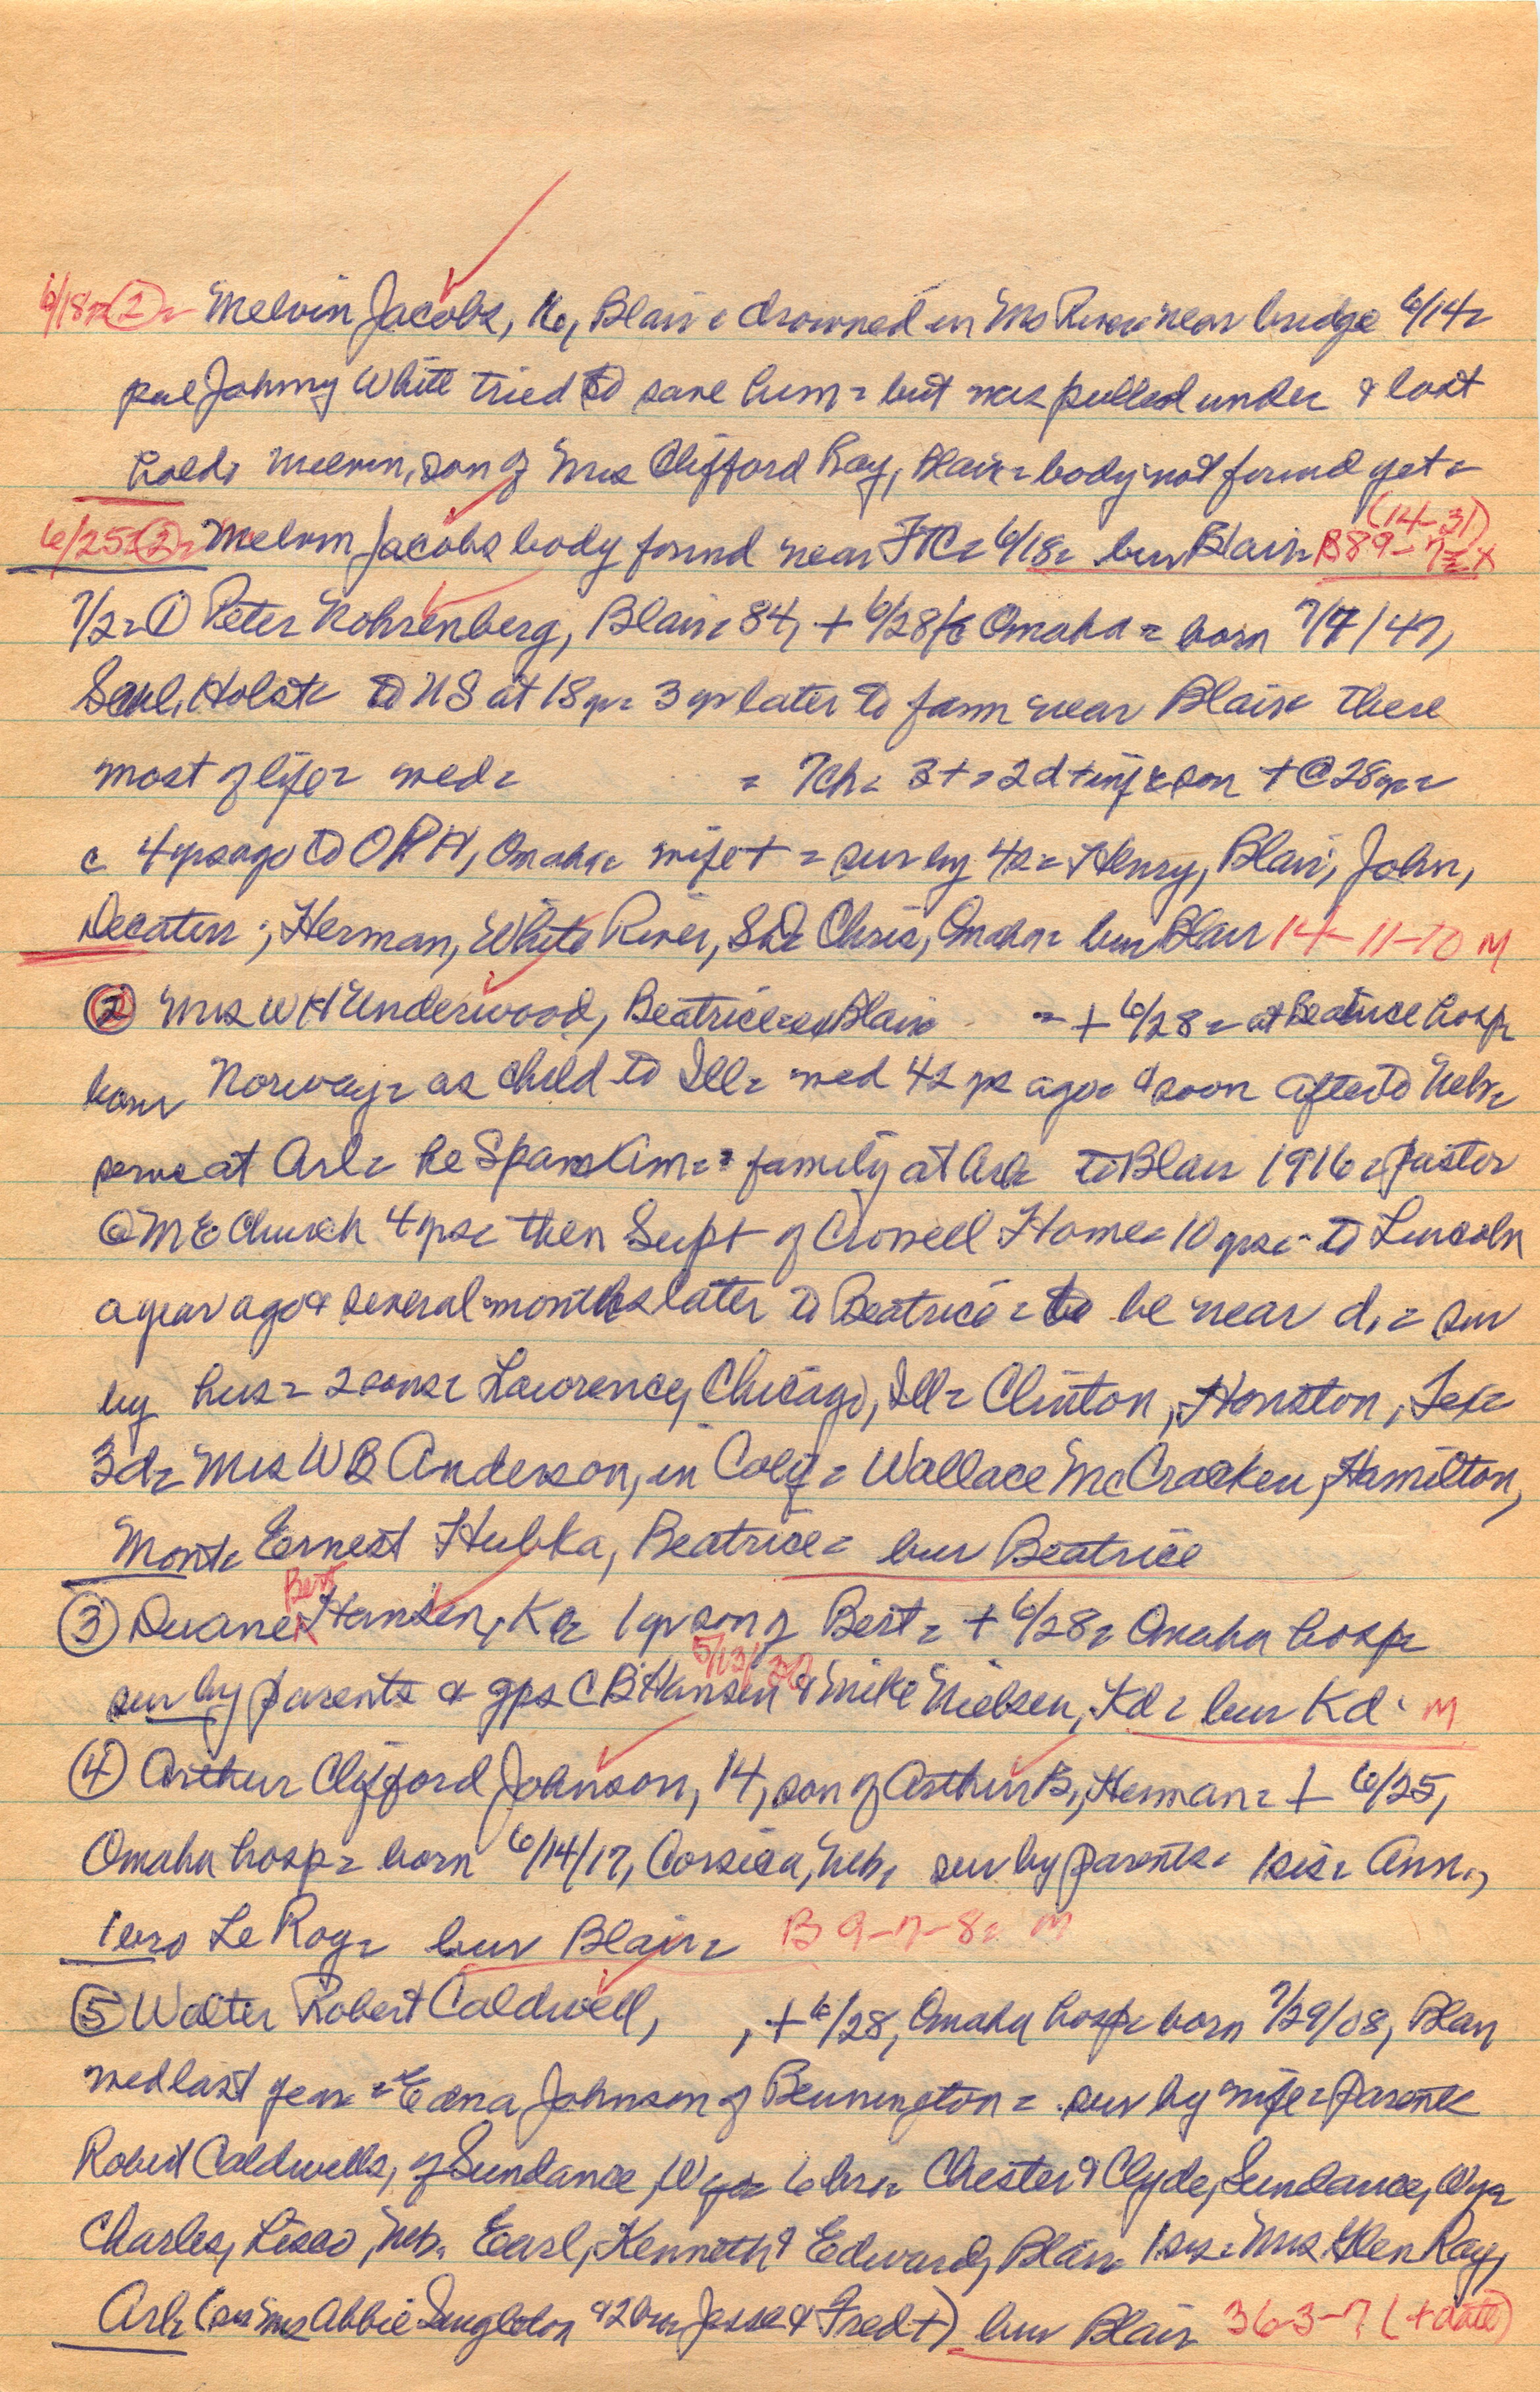 6/18= (2)= Melvin Jacobs, 16, Blair = drowned in Mo River near bridge 6/14=
pal Johnny White tried to save him = but was pulled under & lost
hold= Melvin, son of Mrs Clifford Ray, Blair = body not found yet=
(14-31)
6/25= (2)= Melvin Jacobs body found near FtC= 6/18= bur Blair= B89-7=
7/2= (1) Peter Rohrenberg, Blair= 84, + 6/28 Omaha = born 7/7/47,
Holst= to US at 18 yr= 3 yr later to farm near Blair= there
most of life= med= = 7ch= 3+ = 2d + inf & son + @ 28 yr=
c 4 yrs ago to Omaha= wife + = sur by 4s= Henry, Blair, John,
Decatur; Herman, White River, SD= Chris, Omaha= bur Blair 14-11-10 M
(2) Mrs WH Underwood, Beatrice= ex Blair = + 6/28= at Beatrice hosp=
born Norway= as child to Ill= med 42 yrs ago= & soon after to Nebr=
serve at Arl= he Span Am= = family at Arl= to Blair 1916= pastor
@ ME Church 4 yrs= then Supt of Crowell Home= 10 yrs= to Lincoln
a year ago & several months later to Beatrice = to be near d, = sur
by hus= 2 sons= Lawrence, Chicago, Ill= Clinton, Houston, Tex=
3d= Mrs WB Anderson, in Calif= Wallace McCracken, Hamilton,
Mont= Ernest Hubka, Beatrice= bur Beatrice
Bert
(3) Duane Hansen, K 1 yr son of Bert= + 6/28= Omaha hosp=
5/13/30
sur by parents & gps CB Hansen & Mike Nielsen, Kd= bur Kd. M
(4) Arthur Clifford Johnson, 14, son of Arthur B, Herman= + 6/25,
Omaha hosp= born 6/14/17, Corsica, Neb, sur by parents= 1 sis= Ann,
1 bro Le Roy= bur Blair= B 9-7-8= M
(5) Walter Robert Caldwell, , + 6/28, Omaha hosp= born 7/29/08, Blair
med last year = Edna Johnson of Bennington = sur by wife= parents
Robert Caldwells, of Sundance, Wyo= 6 bro= Chester & Clyde, Sundance, Wyo=
Charles, Lisco, Neb. Earl, Kenneth & Edward, Blair= 1 sis= Mrs Glen Ray,
Arl= (sis Mrs Abbie Singleton & 2 bro Jesse & Fred +) bur Blair 363-7 (+ date)